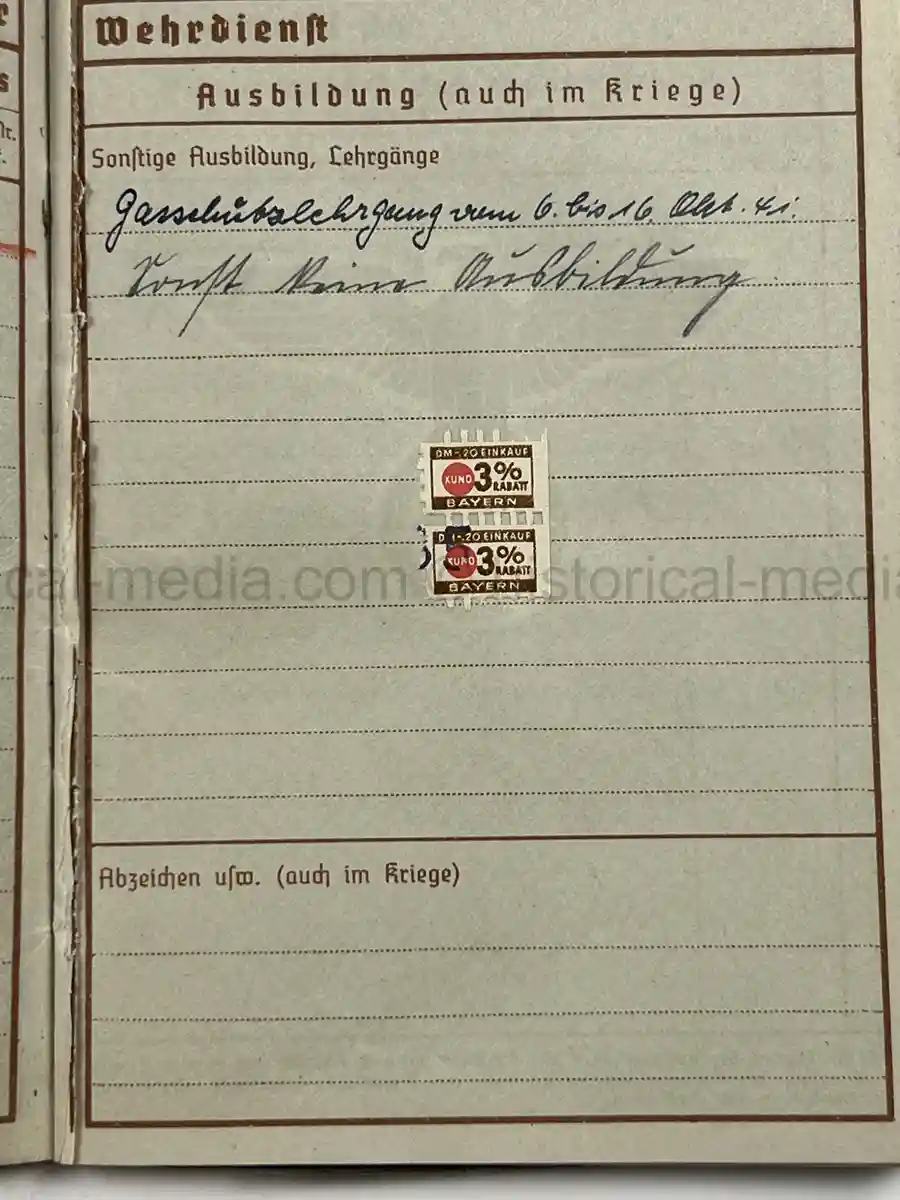 r
s
Nr.
Wehrdienst
Ausbildung (auch im Kriege)
Sonstige Ausbildung, Lehrgänge
Gasschutzlehrgang vom 6. bis 16. Okt. 41.
Sonst keine Ausbildung
DM -.20 EINKAUF
KUNO 3% RABATT
BAYERN
DM -.20 EINKAUF
KUNO 3% RABATT
BAYERN
cal-media.com historical-med
Abzeichen usw. (auch im Kriege)